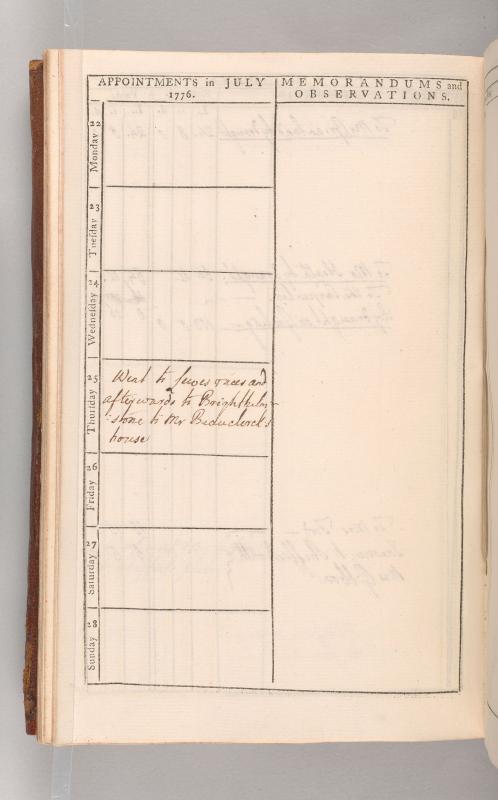 APPOINTMENTS in JULY
1776.
MEMORANDUMS and
OBSERVATIONS.
Monday 22
Tueſday 23
Wedneſday 24
Thurſday 25
Went to Lewes races and
afterwards to Brighthelm-
-stone to Mr Beauclerck's
house
Friday 26
Saturday 27
Sunday 28